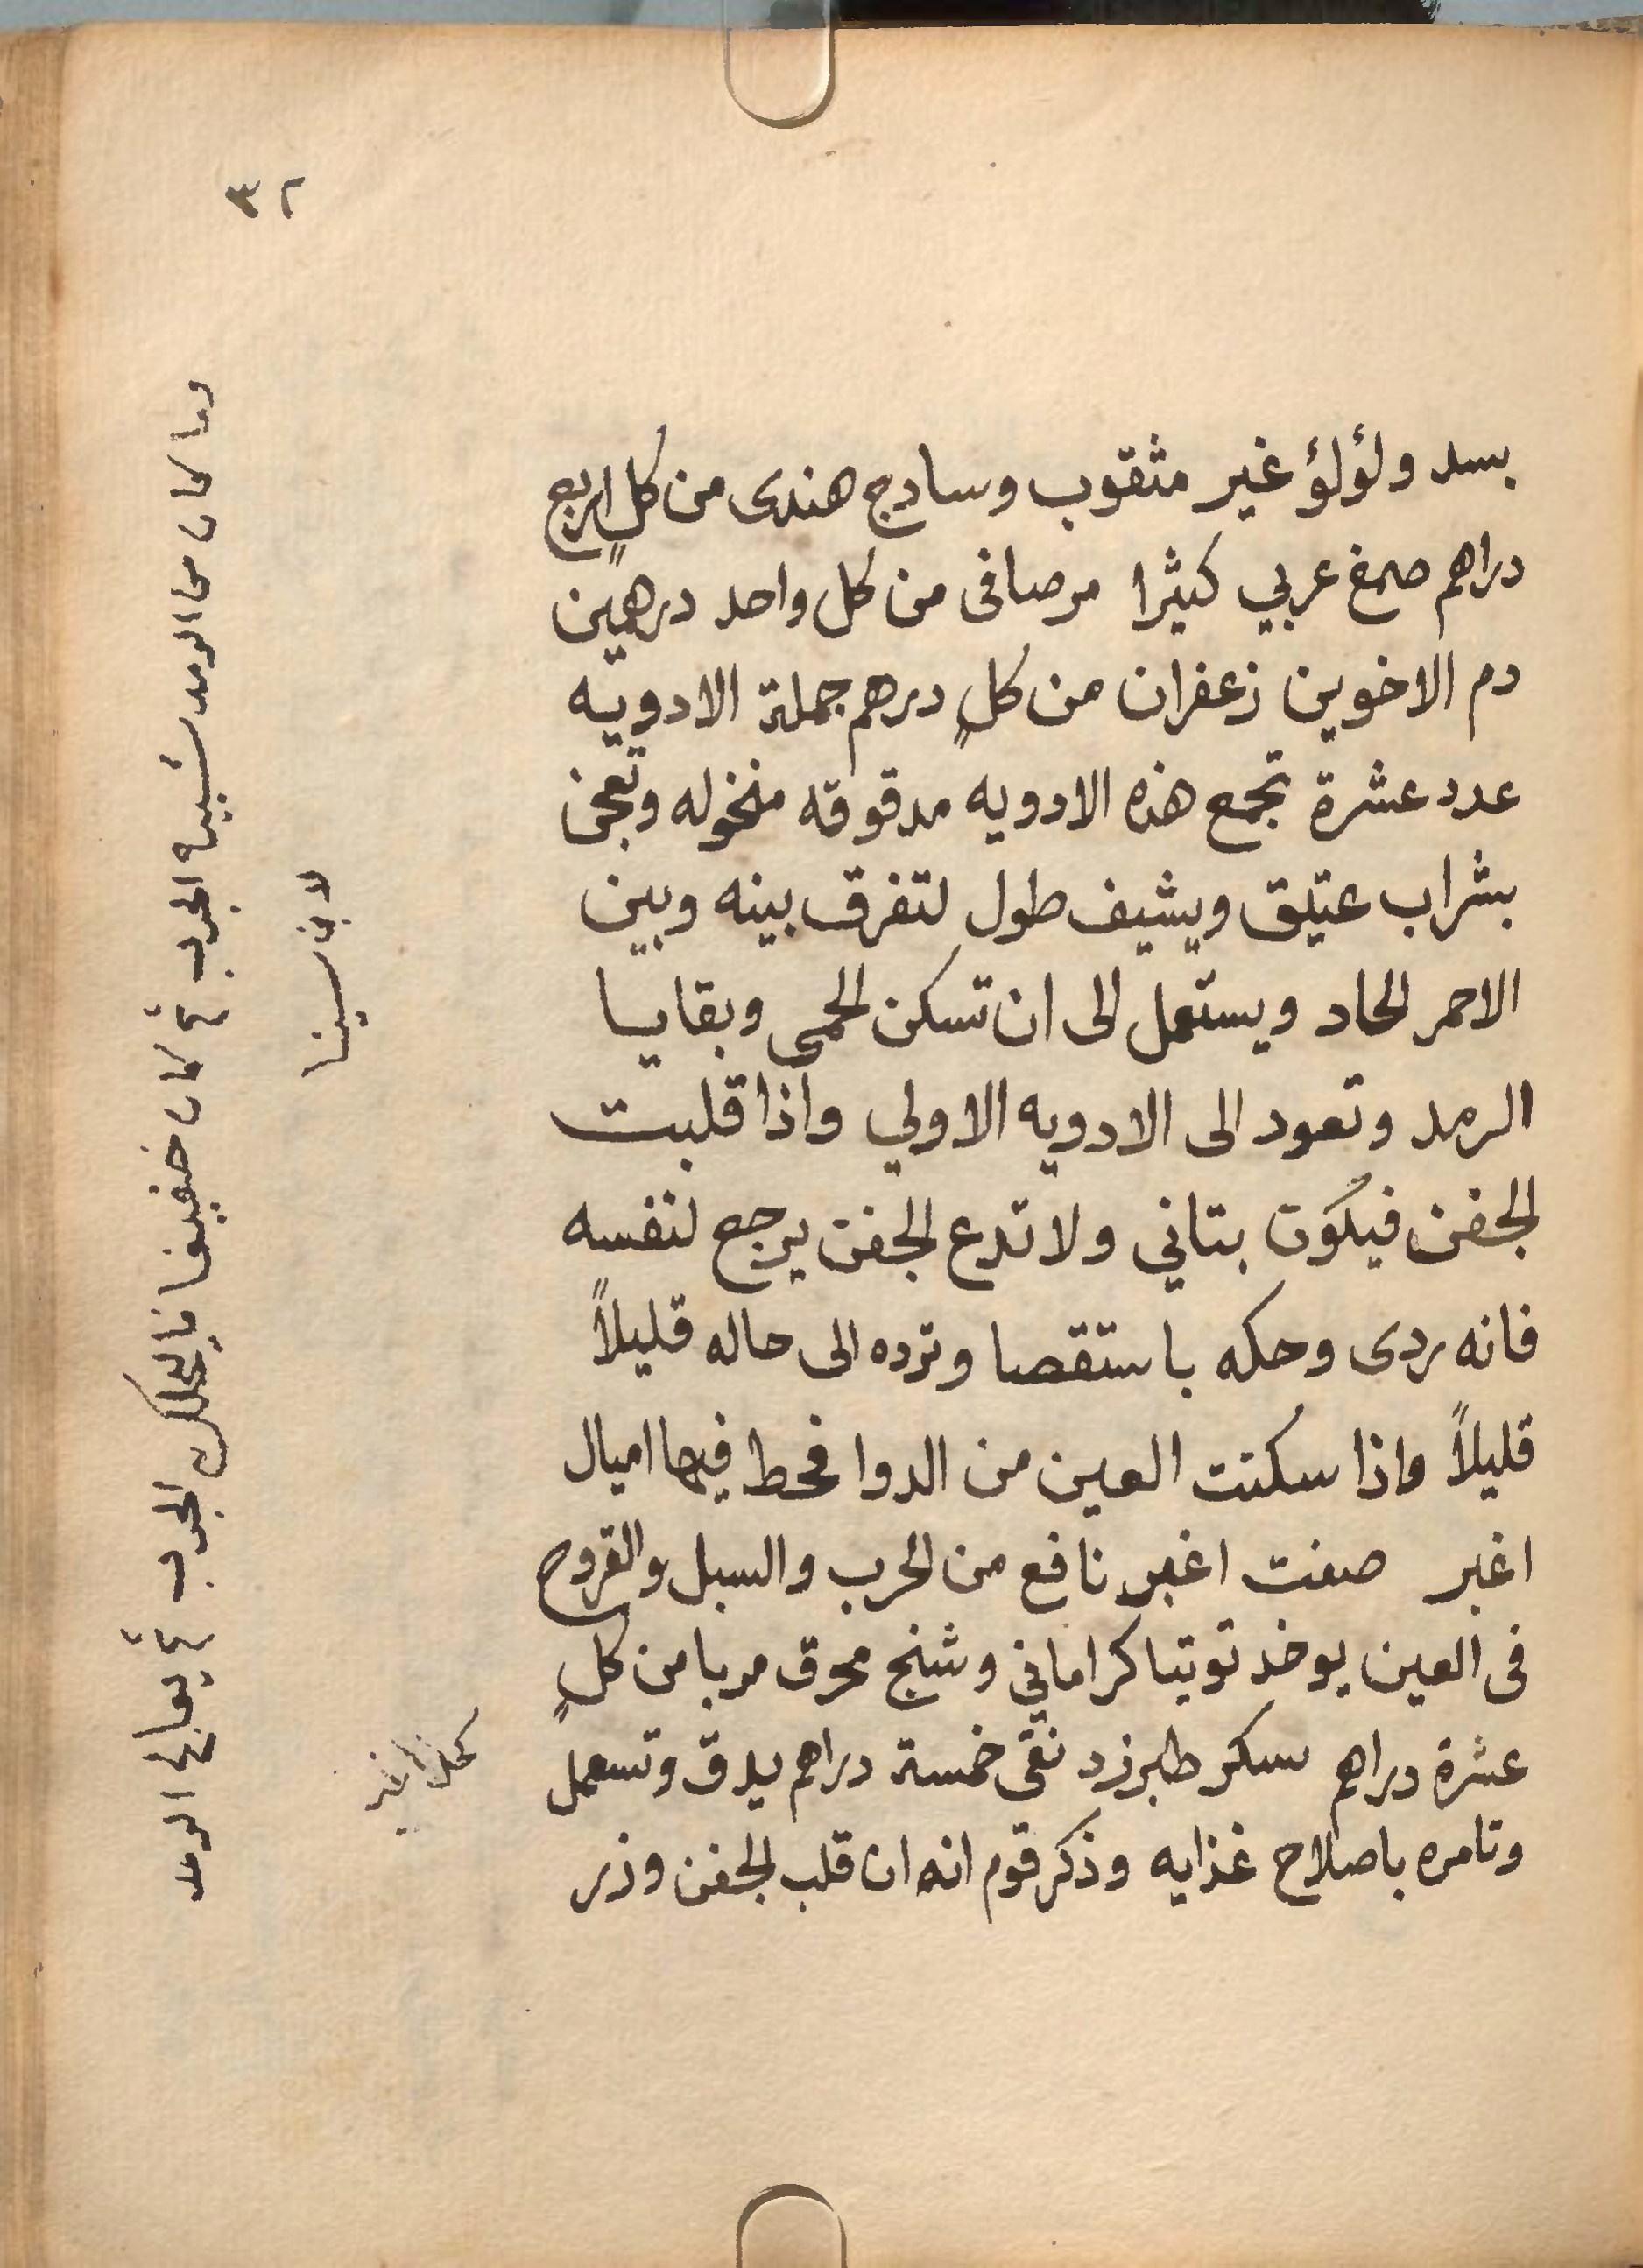 ٣٢
بسد ولؤلؤ غير مثقوب وسادج هندى من كلٍ اربع
دراهم صمغ عربي كثيرا مرصافى من كل واحد درهمين
دم الاخوين زعفران من كلٍ درهم جملة الادويه
عدد عشرة تجمع هذه الادويه مدقوقه منخوله وتعجن
بشراب عتيق ويشيف طول لتفرق بينه وبين
الاحمر الحاد ويستعمل الى ان تسكن الحمى وبقايا
الرمد وتعود الى الادويه الاولي واذا قلبت
الجفن فيكون بتاني ولا تدع الجفن يرجع لنفسه
فانه ردى وحكه باستقصا وترده الى حاله قليلاً
قليلاً واذا سكنت العين من الدوا فحط فيها اميال
اغبر صفت اغبر نافع من الجرب والسبل والقروح
فى العين يوخذ توتيا كراماني وشنج محرق مربا من كلٍ
عشرة دراهم سكر طبرزد نقى خمسة دراهم يدق وتسعمل
وتامره باصلاح غذايه وذكر قوم انه ان قلب الجفن وذر
وما كان من الرمد سببه الجرب ثم كان خفيفا فالحك الجرب ثم يعالج الرمد
لابن سينا